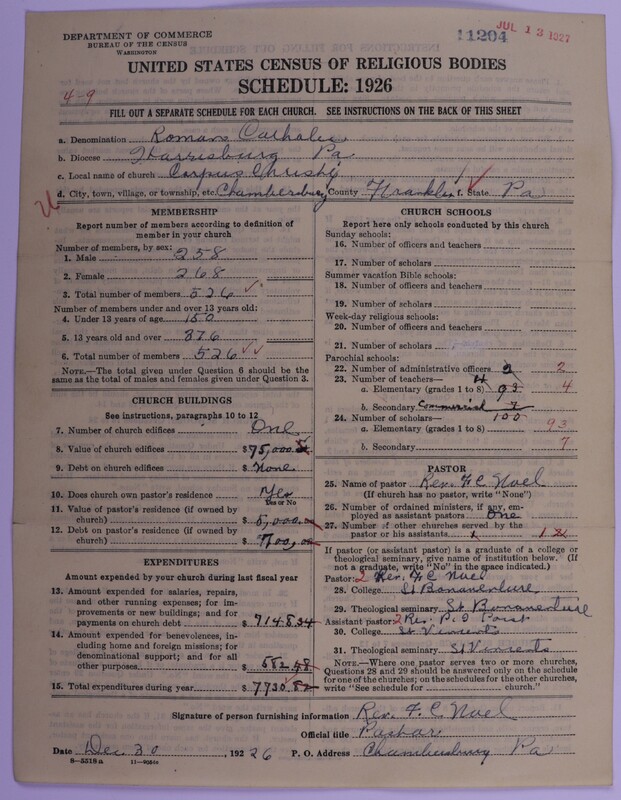 DEPARTMENT OF COMMERCE
BUREAU OF THE CENSUS
WASHINGTON
11204 JUL 13 1927
UNITED STATES CENSUS OF RELIGIOUS BODIES
SCHEDULE: 1926
4-9
FILL OUT A SEPARATE SCHEDULE FOR EACH CHURCH. SEE INSTRUCTIONS ON THE BACK OF THIS SHEET
a. Denomination Roman Catholic
b. Diocese Harrisburg Pa
c. Local name of church Corpus Christi
d. City, town, village, or township, etc. Chambersburg County Franklin f. State Pa
MEMBERSHIP
Report number of members according to definition of
member in your church
Number of members, by sex:
1. Male 258
2. Female 268
3. Total number of members 526
Number of members under and over 13 years old:
4. Under 13 years of age 150
5. 13 years old and over 376
6. Total number of members 526
NOTE.—The total given under Question 6 should be
same as the total of males and females given under Question 3.
CHURCH BUILDINGS
See instructions, paragraphs 10 to 12
7. Number of church edifices One
8. Value of church edifices $75,000
9. Debt on church edifices $None
10. Does church own pastor's residence Yes
Yes or No
11. Value of pastor's residence (if owned by
church) $5,000.00
12. Debt on pastor's residence (if owned by
church) $700.00
EXPENDITURES
Amount expended by your church during last fiscal year
13. Amount expended for salaries, repairs,
and other running expenses; for im-
provements or new buildings; and for
payments on church debt $7148.34
14. Amount expended for benevolences, in-
cluding home and foreign missions; for
denominational support; and for all
other purposes. $582.48
15. Total expenditures during year $7730.82
CHURCH SCHOOLS
Report here only schools conducted by this church
Sunday schools:
16. Number of officers and teachers
17. Number of scholars
Summer vacation Bible schools:
18. Number of officers and teachers
19. Number of scholars
Week-day religious schools:
20. Number of officers and teachers
21. Number of scholars
Parochial schools:
22. Number of administrative officers 2 2
23. Number of teachers— 4
a. Elementary (grades 1 to 8) 93 4
b. Secondary Commercial 7
24. Number of scholars— 100
a. Elementary (grades 1 to 8) 93
b. Secondary 7
PASTOR
25. Name of pastor Rev. F C Noel
(If church has no pastor, write "None")
26. Number of ordained ministers, if any, em-
ployed as assistant pastors One
27. Number of other churches served by the
pastor or his assistants 1 1
If pastor (or assistant pastor) is a graduate of a college or
theological seminary, give name of institution below. (If
not a graduate, write "No" in the space indicated.)
Pastor: 2 Rev. F C Noel
28. College St Bonaventure
29. Theological seminary St Bonaventure
Assistant pastor: 2 Rev.
30. College St Vincents
31. Theological seminary St Vincents
NOTE.—Where one pastor serves two or more churches,
Questions 28 and 29 should be answered only on the schedule
for one of the churches; on the schedules for the other churches,
write "See schedule for church."
Signature of person furnishing information Rev. F. C. Noel
Official title Pastor
Date Dec 30 1926 P. O. Address Chambersburg Pa
8-5518 a